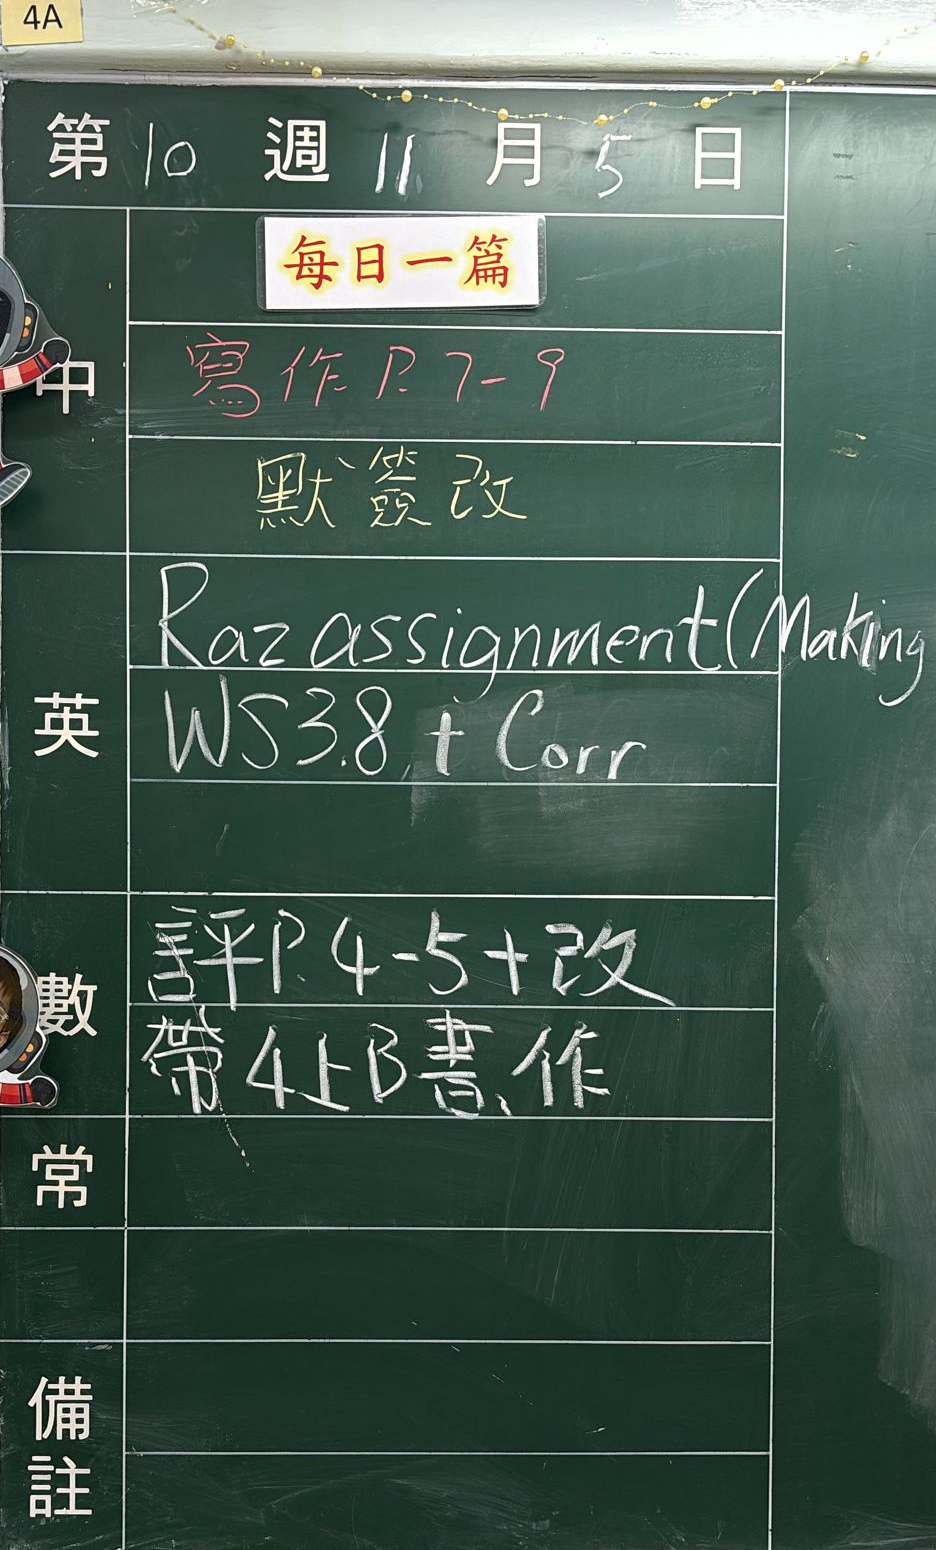 4A
第 10 週 11 月 5 日
每日一篇
中
寫作 P.7-9
默簽改
英
Raz assignment (Making
WS3.8 + Corr
數
評P.4-5+改
帶4上B書、作
常
備註